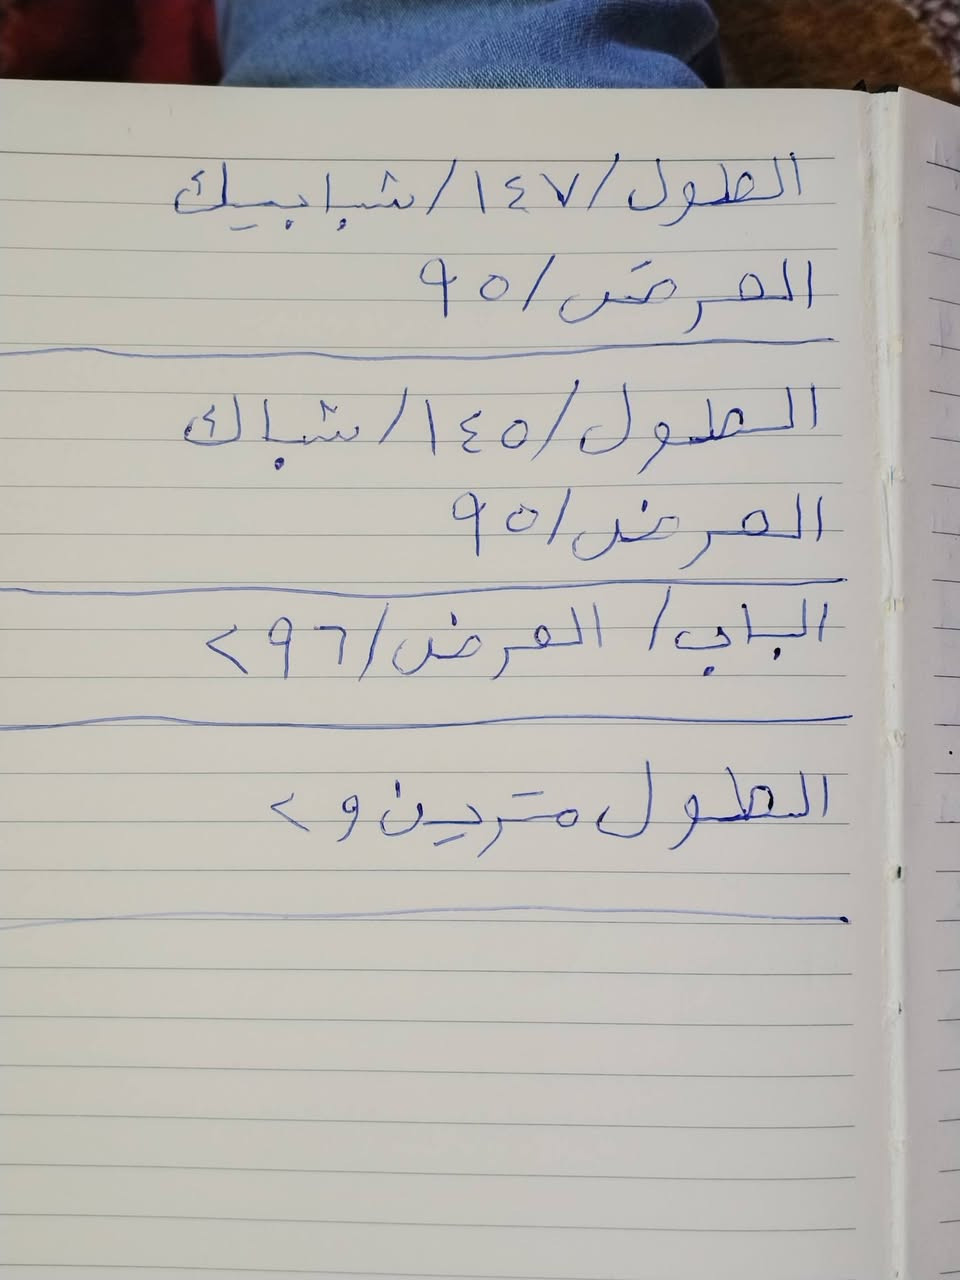 الطول/١٤٧/شبابيك
العرض/٩٥
الطول/١٤٥/شباك
العرض/٩٥
الباب/ العرض/٢٩٦
الطول مترين و ٢